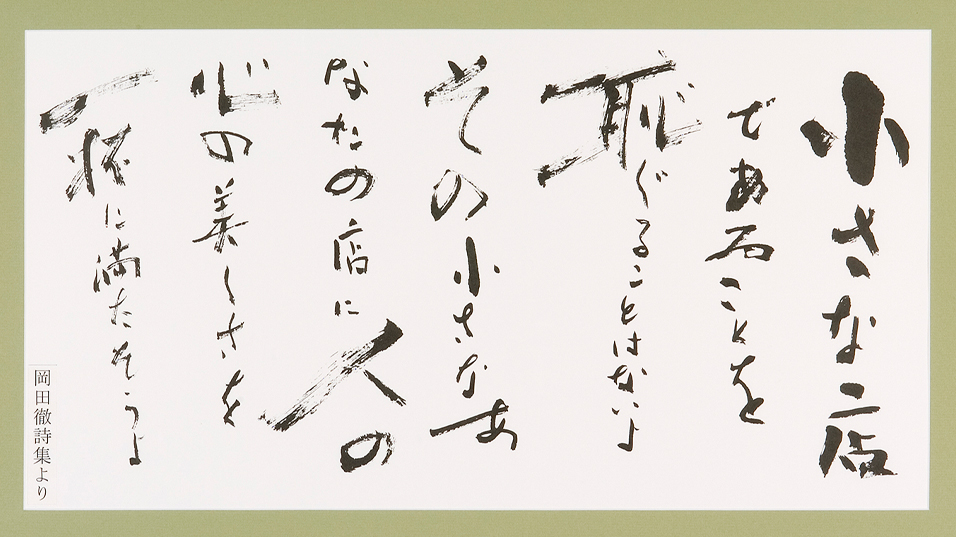 小さな店
であることを
恥ぐることはないよ
その小さなあ
なたの店に人の
心の美しさを
一杯に満たそうよ
岡田徹詩集より